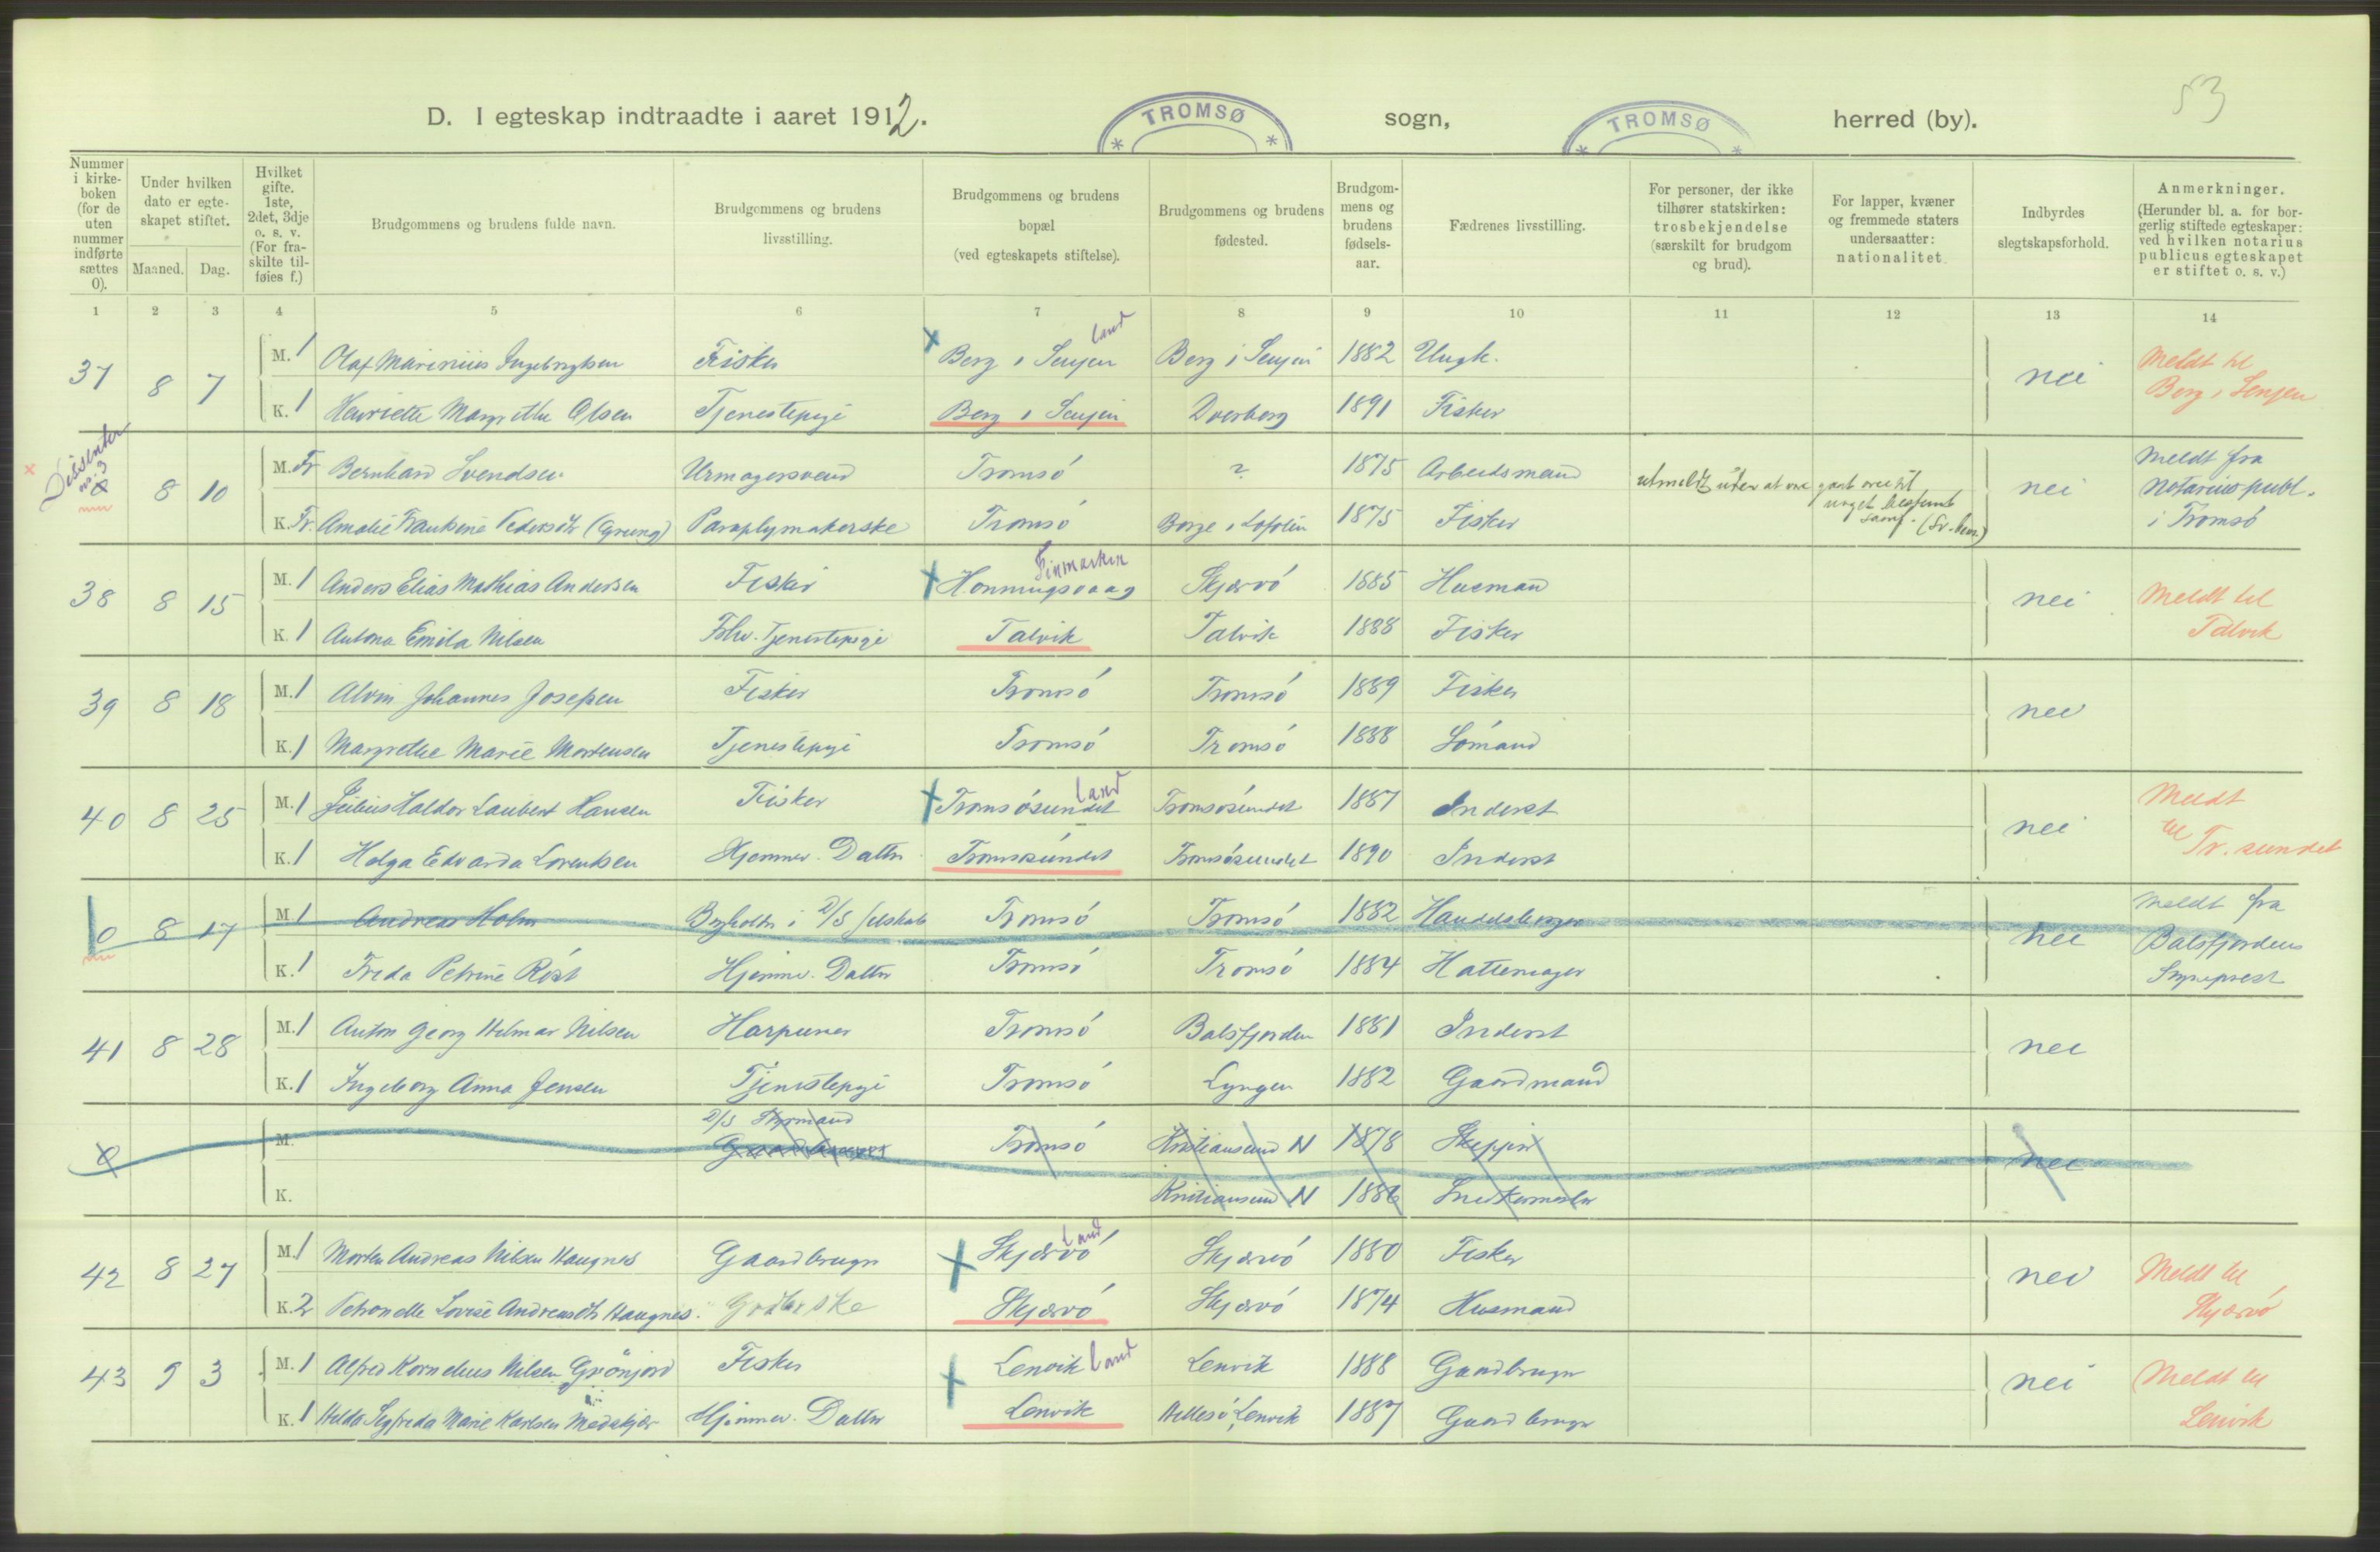 53
D. I egteskap indtraadte i aaret 1912. TROMSØ sogn, TROMSØ herred (by).
Nummer i kirke-boken (for de uten nummer indførte sættes 0).
Under hvilken dato er egte-skapet stiftet.
Maaned. Dag.
Hvilket gifte. 1ste, 2det, 3dje o. s. v. (For fra-skilte til-føies f.)
Brudgommens og brudens fulde navn.
Brudgommens og brudens livsstilling.
Brudgommens og brudens bopæl (ved egteskapets stiftelse).
Brudgommens og brudens fødested.
Brudgom-mens og brudens fødsels-aar.
Fædrenes livsstilling.
For personer, der ikke tilhører statskirken: trosbekjendelse (særskilt for brudgom og brud).
For lapper, kvæner og fremmede staters undersaatter: nationalitet
Indbyrdes slegtskapsforhold.
Anmerkninger. (Herunder bl. a. for bor-gerlig stiftede egteskaper: ved hvilken notarius publicus egteskapet er stiftet o. s. v.)
1 2 3 4 5 6 7 8 9 10 11 12 13 14
37 8 7 M. 1 Olaf Marinius Ingebrigtsen Fisker Berg i Senjen land Berg i Senjen 1882 Ungk. nei Meldt til Berg i Senjen
K. 1 Henriette Margrethe Olsen Tjenestepige Berg i Senjen Dverberg 1891 Fisker
Dissenter no. 3 8 10 M. Fr Bernhard Svendsen Urmagersvend Tromsö ? 1875 Arbeidsmand utmeldt uten at være gaat over til noget bestemt samf. nei Meldt fra Notarius publ. i Tromsö
K. Fr. Amalie Frankine Pedersdtr (Grung) Paraplymakerske Tromsö Borge i Lofoten 1875 Fisker
38 8 15 M. 1 Anders Elias Mathias Andersen Fisker Honningsvaag Finmarken Skjærvö 1885 Husmand nei Meldt til Talvik
K. 1 Antona Emila Nilsen Fhv. Tjenestepige Talvik Talvik 1888 Fisker
39 8 18 M. 1 Alvin Johannes Josefsen Fisker Tromsö Tromsö 1889 Fisker nei
K. 1 Margrethe Marie Mortensen Tjenestepige Tromsö Tromsö 1888 Sömand
40 8 25 M. 1 Julius Haldor Laubert Hansen Fisker Tromsösundet land Tromsösundet 1887 Inderst nei Meldt til Tr. sundet
K. 1 Helga Edvarda Lorentsen Hjemmev. Datter Tromsösundet Tromsösundet 1890 Inderst
0 8 17 M. 1 Andreas Holm Bogholder i D/S selskab Tromsö Tromsö 1882 Handelsborger nei Meldt fra Balsfjordens Sogneprest
K. 1 Freda Petrine Röst Hjemmev. Datter Tromsö Tromsö 1884 Hattemager
41 8 28 M. 1 Anton Georg Hilmar Nilsen Harpuner Tromsö Balsfjorden 1881 Inderst nei
K. 1 Ingeborg Anna Jensen Tjenestepige Tromsö Lyngen 1882 Gaardmand
0 M. D/S Styrmand Tromsö Kristiansund N 1878 Skipper nei
K. Kristiansund N 1886 Snedkermester
42 8 27 M. 1 Morten Andreas Nilsen Haugnes Gaardbruger Skjærvö land Skjærvö 1880 Fisker nei Meldt til Skjærvö
K. 2 Petronelle Lovise Andreasdtr Haugnes Skjærvö Skjærvö 1874 Husmand
43 9 3 M. 1 Alfred Kornelius Nilsen Grönjord Fisker Lenvik land Lenvik 1888 Gaardbruger nei Meldt til Lenvik
K. 1 Hilda Segfreda Marie Karlsen Hjemmev. Datter Lenvik Hellesö, Lenvik 1887 Gaardbruger